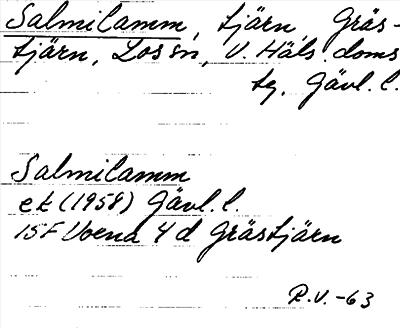 Salmilamm, tjärn, Gräs-
tjärn, Los sn, V. Häls. doms
tg. Gävl. l.
Salmilamm
ek (1958) Gävl. l.
15F Voxna 4d Grästjärn
R.V. -63